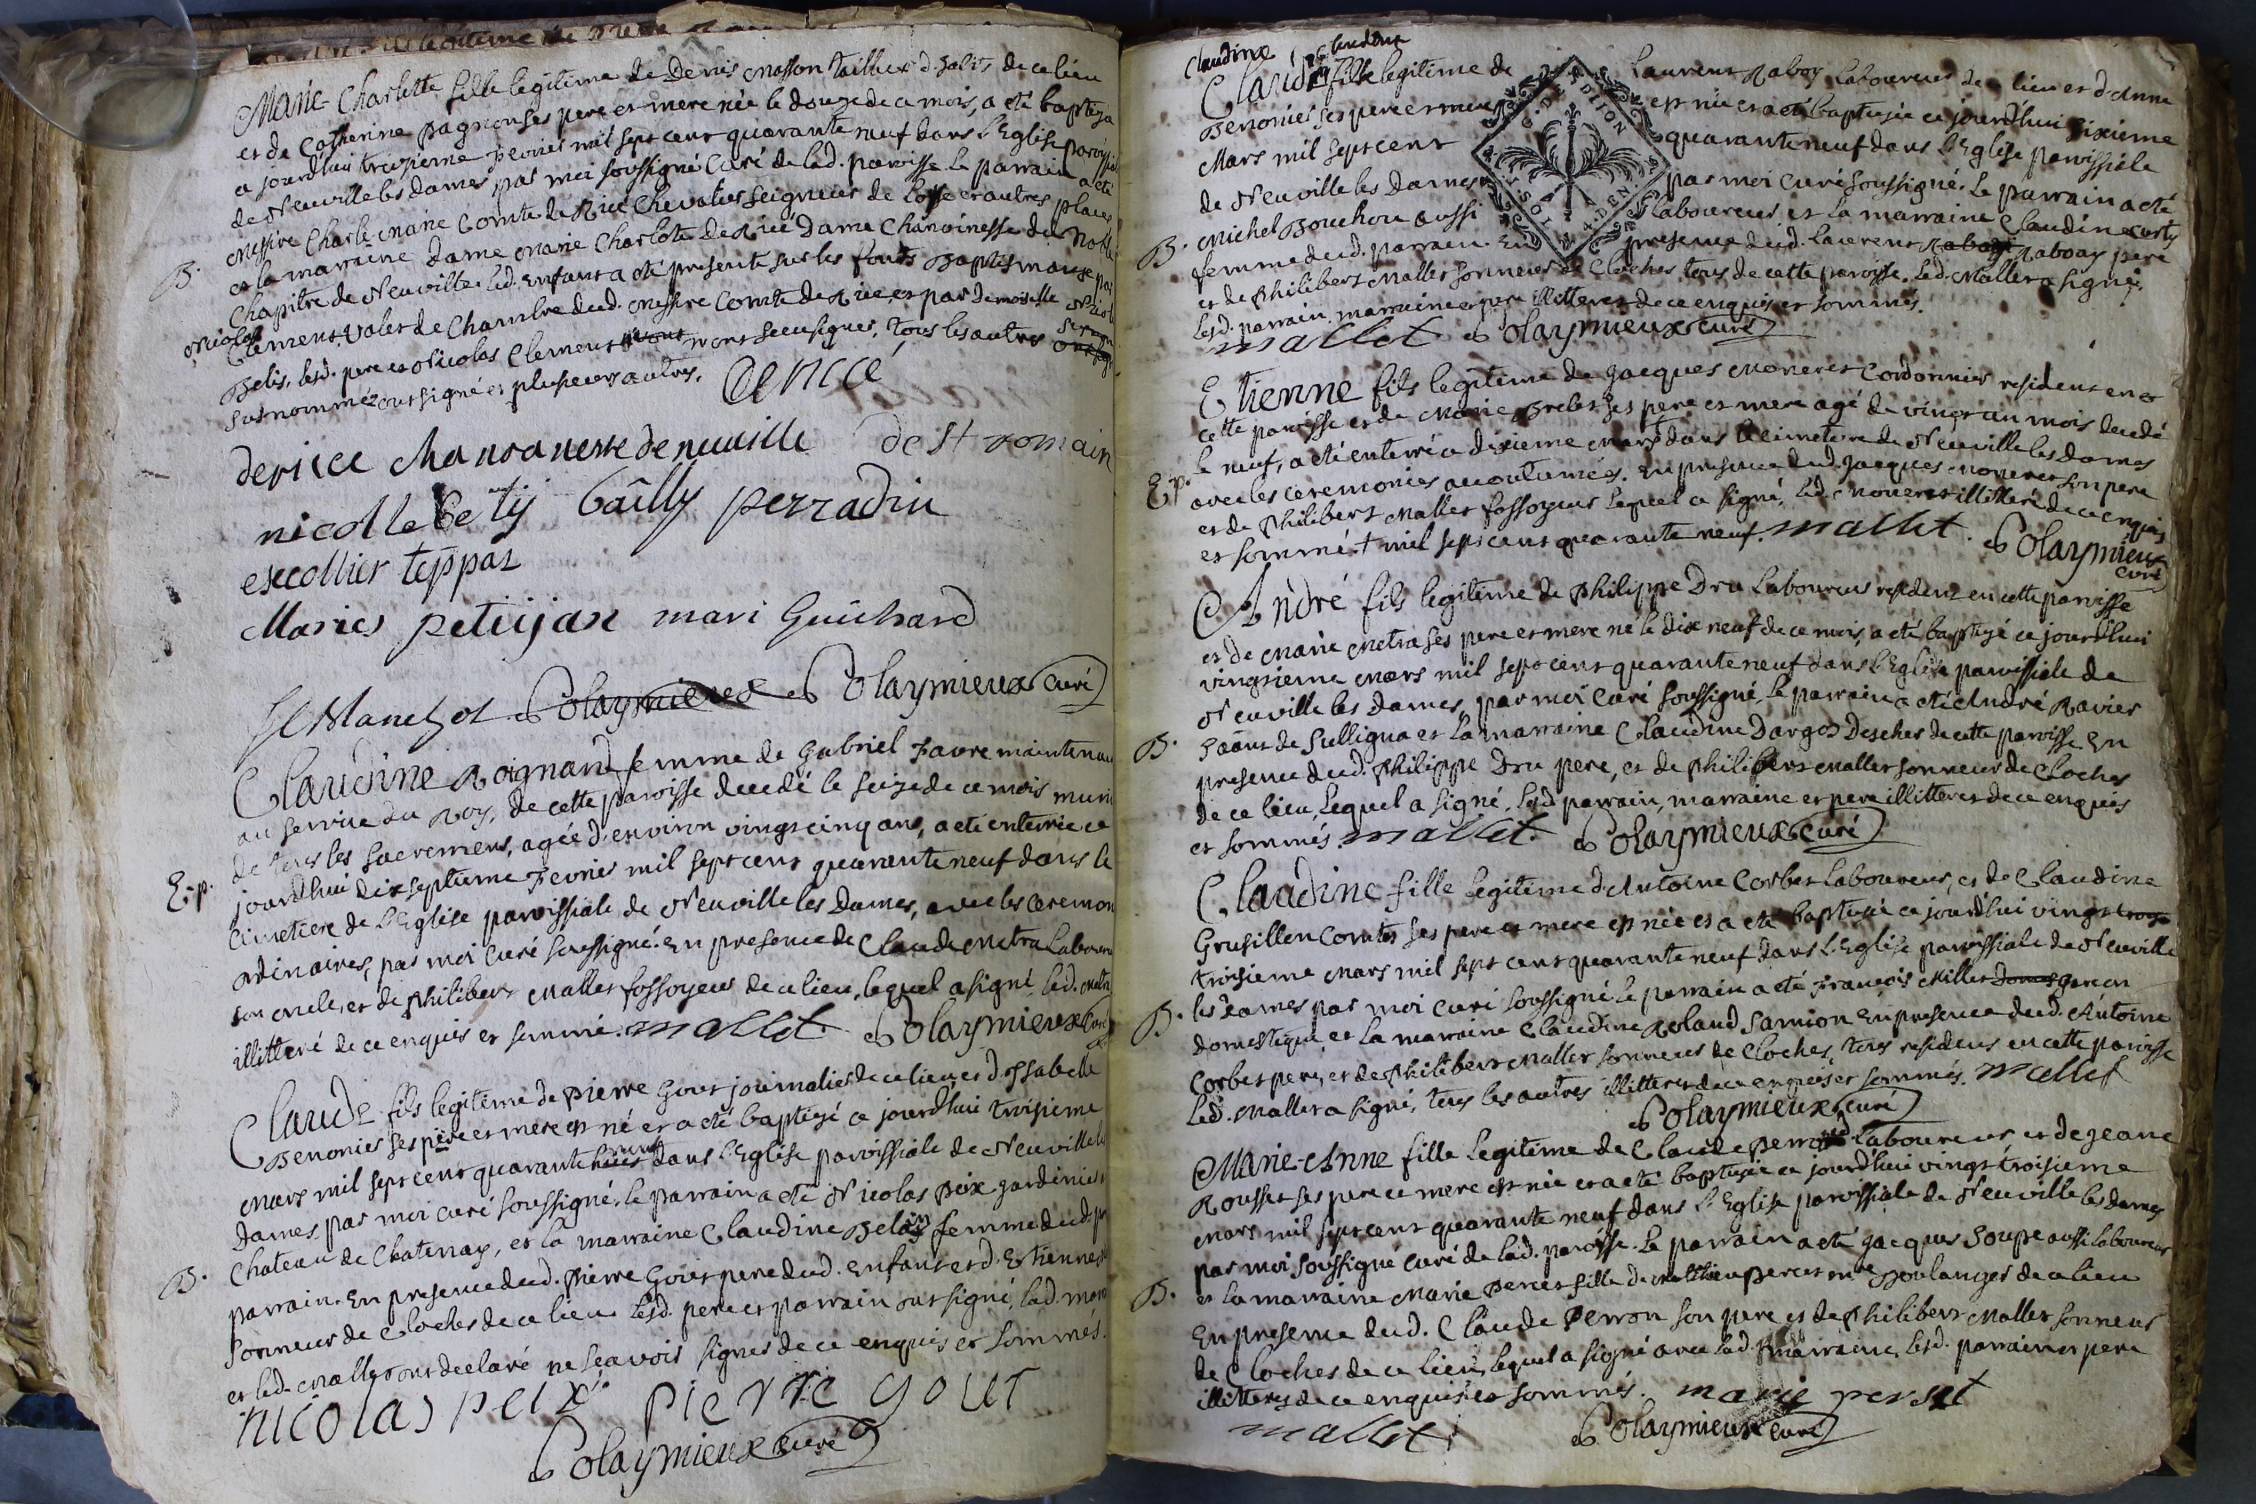 Marie-Charlotte fille legitime de Denis Masson tailleur d'habits de ce lieu
et de Catherine Pagnon ses pere et mere née le douze de ce mois, a été baptizé
ce jourd'hui treizieme Fevrier mil sept cent quarante neuf dans l'Eglise paroissial
de Neuville les Dames par moi soussigné Curé de lad. paroisse. Le parrain a été
Messire Charle Marie Comte de Rivé Chevalier Seigneur de et autres places
B. et la marraine Dame Marie Charlote de Dame Chanoinesse du Noble
Chapitre de Neuville. Led. Enfant a été presenté sur les fonts Baptismaux par
Nicolas
Clement valet de Chambre dud. Messire Comte de et par Demoiselle
Betis, lesd. pere et Nicolas Clement n'ont sceu signer, tous les autres
susnommés ont signé et plusieurs autres.
chanoanesse de neuville de st romain
nicolle betÿ bailly perradin
escollier teppaz
Maries petitjan mari Guichard
Blanchot Colaymieux Colaymieux Curé
Claudine Roignard femme de Gabriel Favre maintenan
au service du Roy, de cette paroisse decedé le seize de ce mois muni
de tous les sacremens, agée d'environ vingt cinq ans, a été enterrée ce
E-p. jourd'hui dix septieme Fevrier mil sept cent quarante neuf dans le
Cimetiere de l'Eglise paroissiale de Neuville les Dames, avec les ceremon
ordinaires, par moi Curé soussigné. En presence de Claude Metra Laboureu
son oncle, et de Philibert Mallet fossoyeur de ce lieu, lequel a signé led. Metra
illitteré de ce enquis et sommé. mallet Colaymieux Curé
Claude fils legitime de Pierre Gout journalier de ce lieu et d'Issabelle
Benonier ses pere et mere est né et a été baptizé ce jourd'hui troisieme
Mars mil sept cent quarante neuf dans l'Eglise paroissiale de Neuville les
Dames, par moi curé soussigné, le parrain a été Nicolas Peix jardinier
Chateau de Chatenay, et la marraine Claudine femme dud.
B. parrain. En presence dud. Pierre Gout pere dud. enfant et d'Etienne
sonneur de Cloches de ce lieu. Lesd. pere et parrain ont signé, lad. marr
et led. Mallet ont declaré ne sçavoir signer de ce enquis et sommés.
nicolas peix pierre gout
Colaymieux curé
Claudine
Claudine fille legitime de Laurent Raboy Laboureur de ce lieu et d'Anne
Benonier ses pere et mere est née et a été baptizée ce jourd'hui sixieme
Mars mil sept cent quarante neuf dans l'Eglise paroissiale
de Neuville les Dames par moi Curé soussigné. Le parrain a été
B. Michel Bouchou aussi laboureur et la marraine Claudine Curty
femme dud. parrain. En presence dud. Laurent Raboy pere
et de Philibert Mallet sonneur de Cloches, tous de cette paroisse. Led. Mallet a signé,
lesd. parrain, marraine et pere illitteres de ce enquis et sommés.
mallet Colaymieux Curé
G. D'ENDITION
1. SOL 4. DEN.
Etienne fils legitime de Jacques Moneret Cordonnier resident en
cette paroisse et de Marie Brelet ses pere et mere agé de vingt un mois decedé
le neuf, a été enterré ce dixieme mars+ dans le cimetiere de Neuville les Dames
E-p. avec les ceremonies accoutumées. En presence dud. Jacques Moneret son pere
et de Philibert Mallet fossoyeur lequel a signé, led. Moneret illitteré de ce enquis
et sommé. + mil sept cent quarante neuf. mallet. Colaymieux
curé
André fils legitime de Philippe Dru Laboureur resident en cette paroisse
et de Marie Metra ses pere et mere né le dix neuf de ce mois, a été baptizé ce jourd'hui
vingtieme Mars mil sept cent quarante neuf dans l'Eglise paroissiale de
Neuville les Dames, par moi Curé soussigné, le parrain a été André Ravier
B. de Sulligna et la marraine Claudine de cette paroisse. En
presence dud. Philippe Dru pere, et de Philibert Mallet sonneur de Cloches
de ce lieu, lequel a signé, lesd. parrain, marraine et pere illitteres de ce enquis
et sommés. mallet. Colaymieux curé
Claudine fille legitime d'Antoine Corbet Laboureur, et de Claudine
Grusillen Comtet ses pere et mere est née et a été baptizée ce jourd'hui vingt
troisieme Mars mil sept cent quarante neuf dans l'Eglise paroissiale de Neuville
B. les Dames par moi curé soussigné. Le parrain a été François Millet garcon
domestique et la marraine Claudine Roland Samion. En presence dud. Antoine
Corbet pere, et de Philibert Mallet sonneur de Cloches, tous residens en cette paroisse
Led. Mallet a signé, tous les autres illitteres de ce enquis et sommés. mallet
Colaymieux Curé
Marie-Anne fille legitime de Claude Perron Laboureur et de Jeane
Rousset ses pere et mere est née et a été baptizée ce jourd'hui vingt troisieme
Mars mil sept cent quarante neuf dans l'Eglise paroissiale de Neuville les Dames
par moi soussigné curé de lad. paroisse. Le parrain a été Jacques Soupe aussi laboureur
B. et la marraine Marie Percet fille de Matthieu Percet Boulanger de ce lieu
En presence dud. Claude Perron son pere et de Philibert Mallet sonneur
de Cloches de ce lieu, lequel a signé avec lad. marraine, lesd. parrain et pere
illitteres de ce enquis et sommés. marie perset
mallet Colaymieux curé